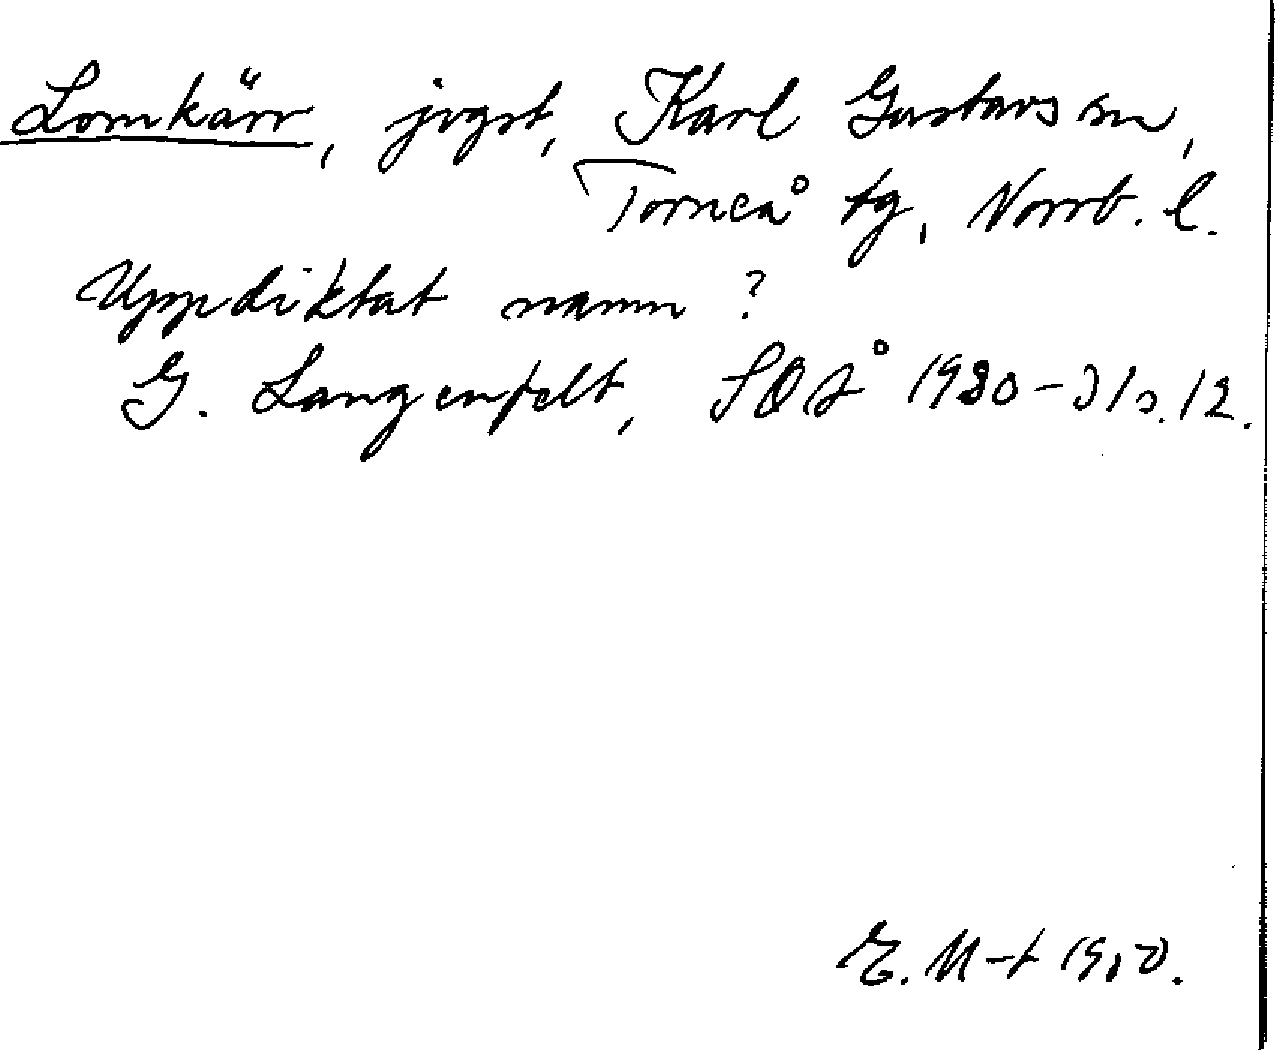 Lomkärr, jvgst, Karl Gustavs sn,
Torneå tg, Norrb. l.
Uppdiktat namn?
G. Langenfelt, SOÅ 1930-31 s. 12.
E. M-t